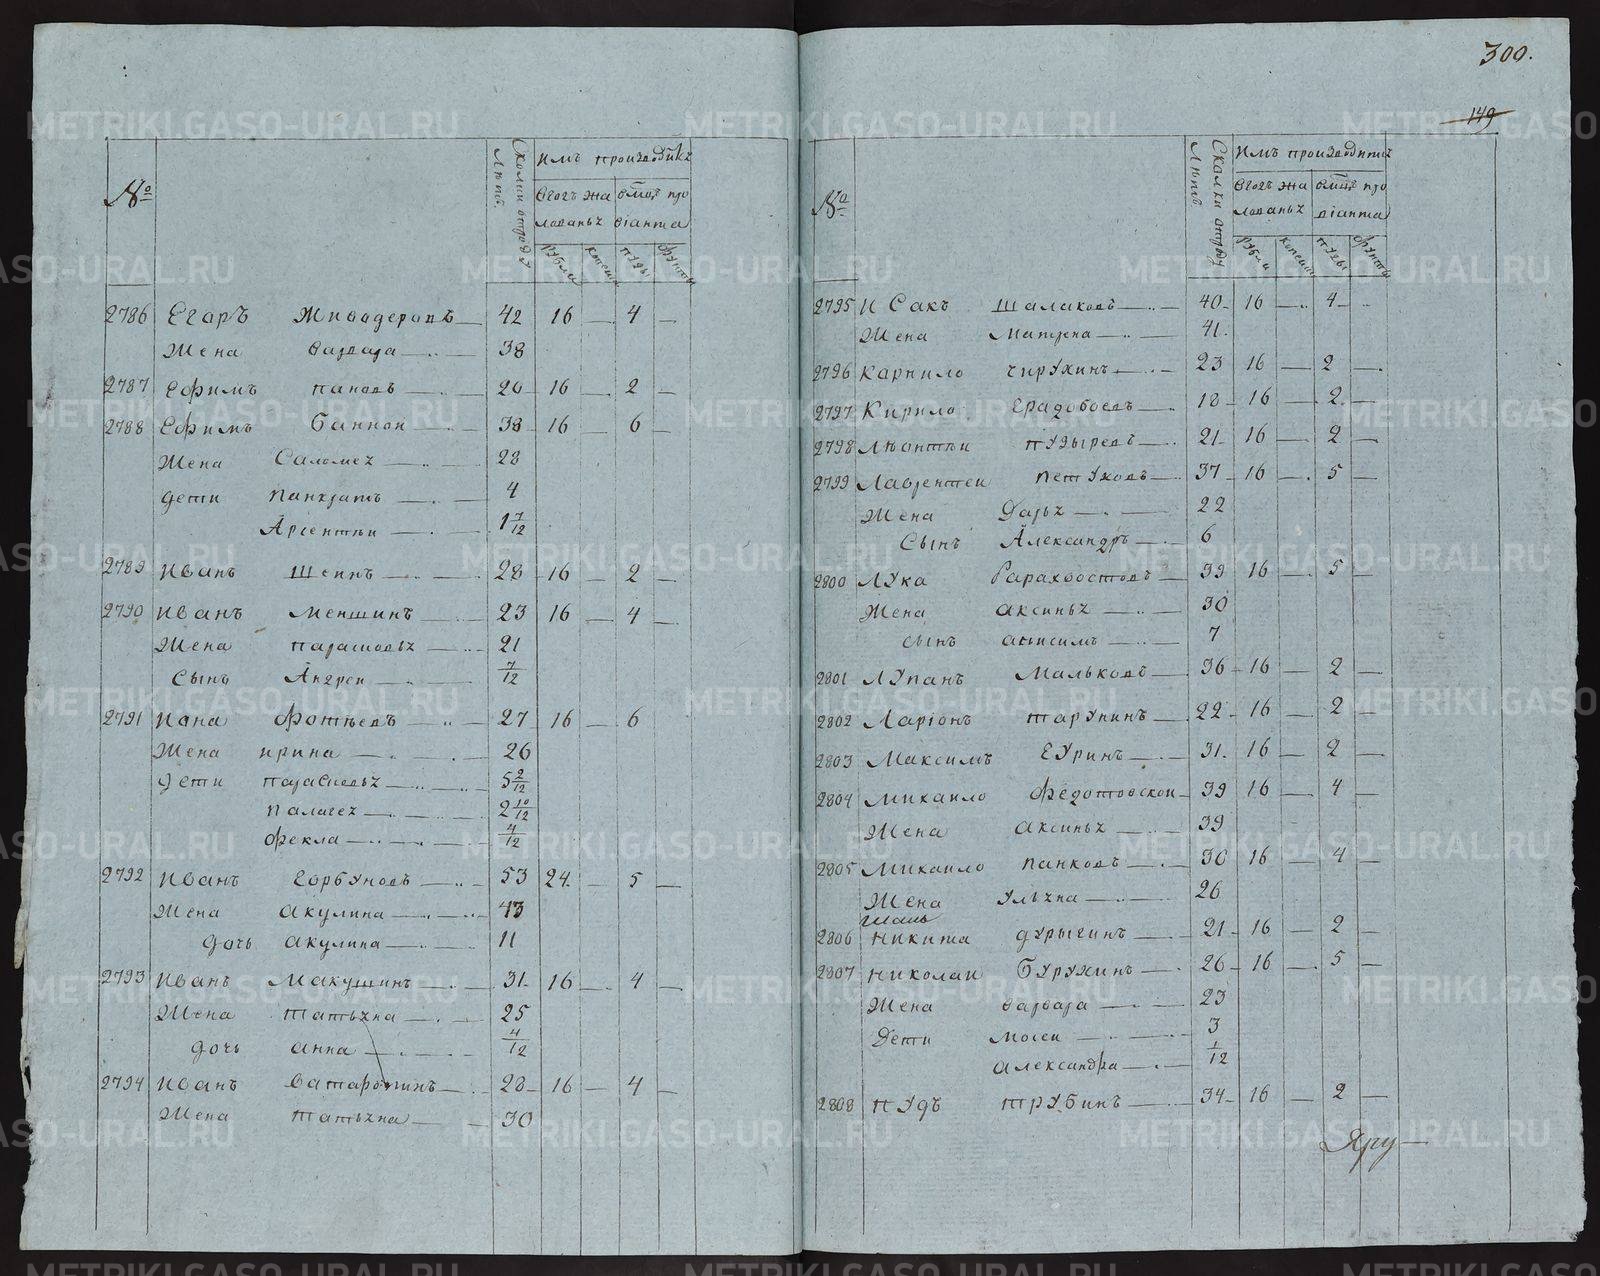 300.
149
№
Сколки отроду
Лѣтъ.
Имъ производится
в годъ жа
лованья
в мѣсяцъ про
віанта
рубли
копеики
пуды
фунты
2786 Егаръ Живодеровъ 42 16 — 4 —
Жена варвара 38
2787 Ефимъ пановъ 20 16 — 2 —
2788 Ефимъ баннои 38 16 — 6 —
Жена Саломея 28
дети панкратъ 4
Арсентѣи 1 7/12
2789 иванъ шеинъ 28 16 — 2 —
2790 иванъ меншинъ 23 16 — 4 —
Жена парасковья 21
Сынъ Андреи 7/12
2791 Иона фотѣевъ 27 16 — 6
Жена ирина 26
дети парасковья 5 2/12
палагея 2 10/12
фекла 4/12
2792 иванъ горбуновъ 53 24 — 5 —
Жена акулина 43
дочь акулина 11
2793 иванъ макушинъ 31 16 — 4 —
Жена татьяна 25
дочь анна 4/12
2794 иванъ ватаропинъ 28 16 — 4 —
Жена татьяна 30
№
Сколки отроду
Лѣтъ
Имъ производится
в годъ жа
лованья
в мѣсяцъ про
віанта
рубли
копеики
пуды
фунты
2795 исакъ шалаховъ 40 16 — 4 —
Жена матрена 41
2796 карпило чирухинъ 23 16 — 2 —
2797 Кирило градобоевъ 18 16 — 2 —
2798 Лѣонтѣи пузыревъ 21 16 — 2 —
2799 Лаврентеи петуховъ 37 16 — 5 —
Жена дарья 22
Сынъ Александръ 6
2800 Лука Карахвостовъ 39 16 — 5 —
Жена аксинья 30
сынъ анисимъ 7
2801 Лупанъ Мальковъ 36 16 — 2 —
2802 Ларіонъ тарунинъ 22 16 — 2 —
2803 Максимъ гуринъ 31 16 — 2 —
2804 Михаило федотовскои 39 16 — 4 —
Жена аксинья 39
2805 Михаило панковъ 30 16 — 4 —
Жена ульяна 26
2806 никита дурыгинъ 21 16 — 2 —
2807 николаи бурухинъ 26 16 — 5 —
Жена варвара 23
дети моисеи 3
александра 1/12
2808 пудъ трубинъ 34 16 — 2 —
METRIKI.GASO-URAL.RU